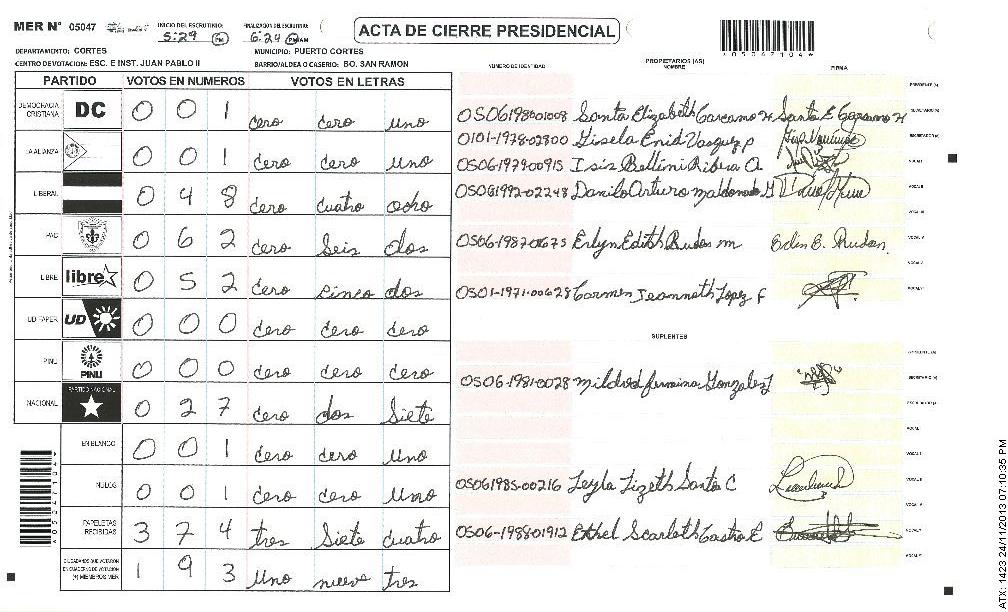 MER Nº 05047
INICIO DEL ESCRUTINIO: 5:29 PM
FINALIZACIÓN DEL ESCRUTINIO: 6:24 PM AM
ACTA DE CIERRE PRESIDENCIAL
*05047104*
DEPARTAMENTO: CORTES
MUNICIPIO: PUERTO CORTES
CENTRO DE VOTACION: ESC. E INST. JUAN PABLO II
BARRIO/ALDEA O CASERIO: BO. SAN RAMON
PARTIDO VOTOS EN NUMEROS VOTOS EN LETRAS
DEMOCRACIA CRISTIANA DC 0 0 1 cero cero uno
LA ALIANZA 0 0 1 cero cero uno
LIBERAL 0 4 8 cero cuatro ocho
PAC 0 6 2 cero seis dos
LIBRE libre 0 5 2 cero cinco dos
UD FAPER UD 0 0 0 cero cero cero
PINU PINU 0 0 0 cero cero cero
NACIONAL PARTIDO NACIONAL 0 2 7 cero dos siete
EN BLANCO 0 0 1 cero cero uno
NULOS 0 0 1 cero cero uno
PAPELETAS RECIBIDAS 3 7 4 tres siete cuatro
CIUDADANOS QUE VOTARON EN CUADERNO DE VOTACION (+) MIEMBROS MER 1 9 3 uno nueve tres
NUMERO DE IDENTIDAD
PROPIETARIOS (AS)
NOMBRE
FIRMA
PRESIDENTE (A)
0506198001008 Santa Elizabeth Carcamo H
SECRETARIO (A)
0101-1978-02800 Gisela Enid Vasquez P
0506-1979-00915 Isis Bellini Ribera A.
VOCAL I
05061992-02248 Danilo Arturo Maldonado G
VOCAL II
VOCAL III
0506-1987-01673 Erlyn Edith Rudas m
0501-1971-00628 Carmen Jeanneth Lopez F
SUPLENTES
0506-1981-0028 mildred fermina Gonzales J
SECRETARIO (A)
VOCAL I
05061985-00216 Leyla Lizeth Santos C
0506-1988-01912 Ethel Scarleth Castro E
*05047104*
ATX: 1423 24/11/2013 07:10:35 PM